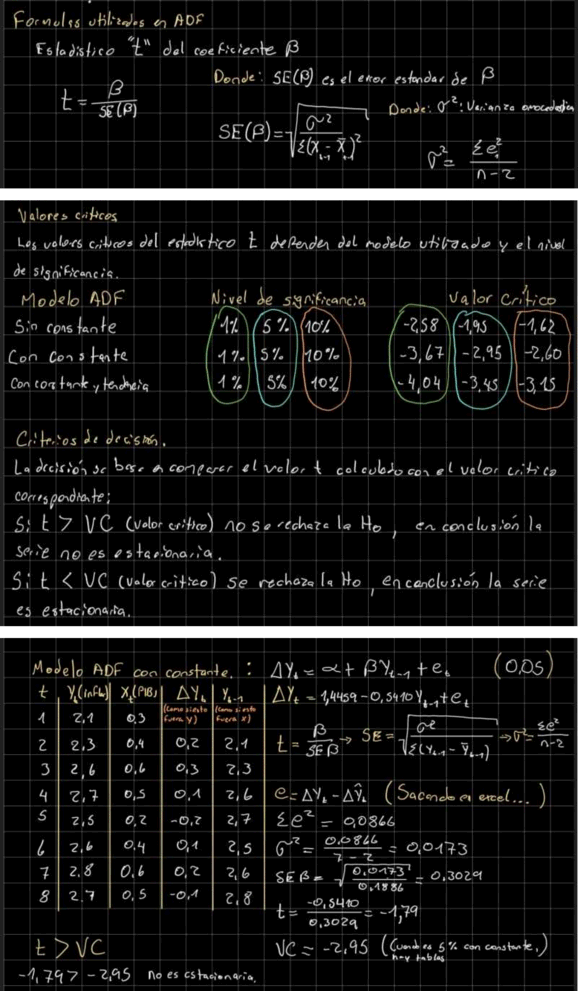 Formulas utilizadas en ADF
Estadistico "t" del coeficiente β
t = β / SE(β)
Donde: SE(β) es el error estandar de β
SE(β) = √(σ² / Σ(X_t-1 - X̄_t-1)²)
Donde: σ²: Varianza
σ² = Σe_t² / n-2
Valores criticos
Los valores criticos del estadistico t dependen del modelo utilizado y el nivel
de significancia.
Modelo ADF Nivel de significancia Valor Critico
Sin constante 1% 5% 10% -2,58 -1,95 -1,62
Con constante 1% 5% 10% -3,67 -2,95 -2,60
Con constante y tendencia 1% 5% 10% -4,04 -3,45 -3,15
Criterios de decisión.
La decisión se basa en comparar el valor t calculado con el valor critico
correspondiente:
Si t > VC (valor critico) no se rechaza la Ho, en conclusión la
serie no es estacionaria.
Si t < VC (valor critico) se rechaza la Ho, en conclusión la serie
es estacionaria.
Modelo ADF con constante. : ΔY_t = α + βY_t-1 + e_t (0,05)
t Y_t(Infla) X_t(PIB) ΔY_t Y_t-1
(como si esto fuera Y) (como si esto fuera X)
1 2,1 0,3
2 2,3 0,4 0,2 2,1
3 2,6 0,6 0,3 2,3
4 2,7 0,5 0,1 2,6
5 2,5 0,2 -0,2 2,7
6 2,6 0,4 0,1 2,5
7 2,8 0,6 0,2 2,6
8 2,7 0,5 -0,1 2,8
ΔY_t = 1,4459 - 0,5410 Y_t-1 + e_t
t = β / SEβ → SE = √(σ² / Σ(Y_t-1 - Ȳ_t-1)) → σ² = Σe² / n-2
e = ΔY_t - ΔŶ_t (Sacando en excel...)
Σe² = 0,0866
σ² = 0,0866 / 7-2 = 0,0173
SEβ = √(0,0173 / 0,1886) = 0,3029
t = -0,5410 / 0,3029 = -1,79
t > VC
VC = -2,95 (Cuando es 5% con constante, hay tablas)
-1,79 > -2,95 no es estacionaria.